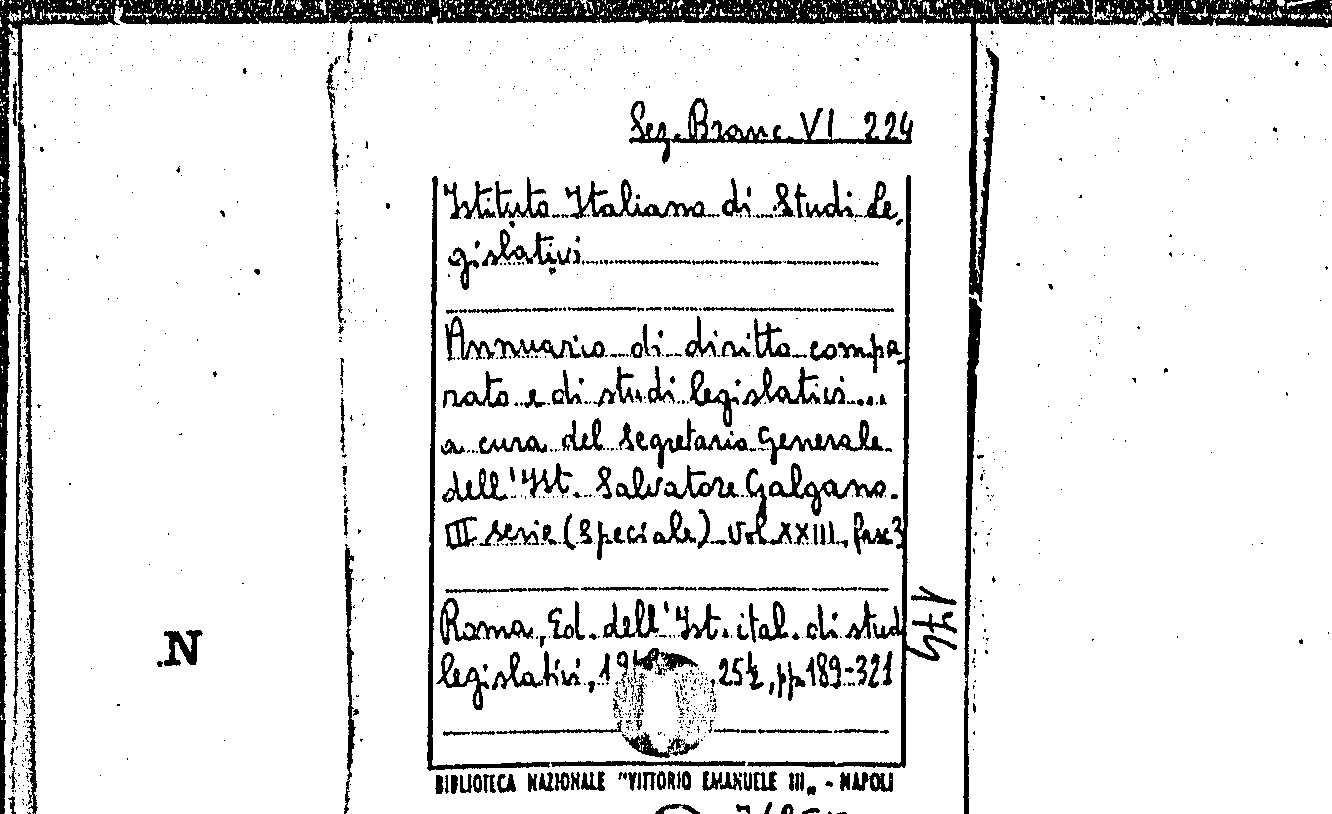 Sez. Branc. VI 224
Istituto Italiano di Studi Le,
gislativi
Annuario di diritto compa
rato e di studi legislativi...
a cura del Segretario Generale
dell'Ist. Salvatore Galgano.
III serie (Speciale) Vol. XXIII, fasc 3
Roma, Ed. dell'Ist. ital. di stud
legislativi, 25½, pp. 189-321
BIBLIOTECA NAZIONALE "VITTORIO EMANUELE III„ - NAPOLI
.N